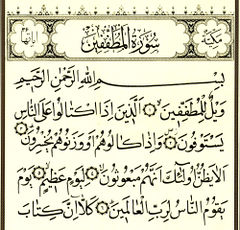 مكية
سورة المطففين
بِسْمِ اللهِ الرَّحْمٰنِ الرَّحِيْمِ
وَيْلٌ لِّلْمُطَفِّفِيْنَ ۝ الَّذِيْنَ اِذَا اكْتَالُوْا عَلَى النَّاسِ
يَسْتَوْفُوْنَ ۝ وَاِذَا كَالُوْهُمْ اَوْ وَّزَنُوْهُمْ يُخْسِرُوْنَ ۝
اَلَا يَظُنُّ اُولٰٓئِكَ اَنَّهُمْ مَّبْعُوْثُوْنَ ۝ لِيَوْمٍ عَظِيْمٍ ۝ يَّوْمَ
يَقُوْمُ النَّاسُ لِرَبِّ الْعٰلَمِيْنَ ۝ كَلَّآ اِنَّ كِتٰبَ